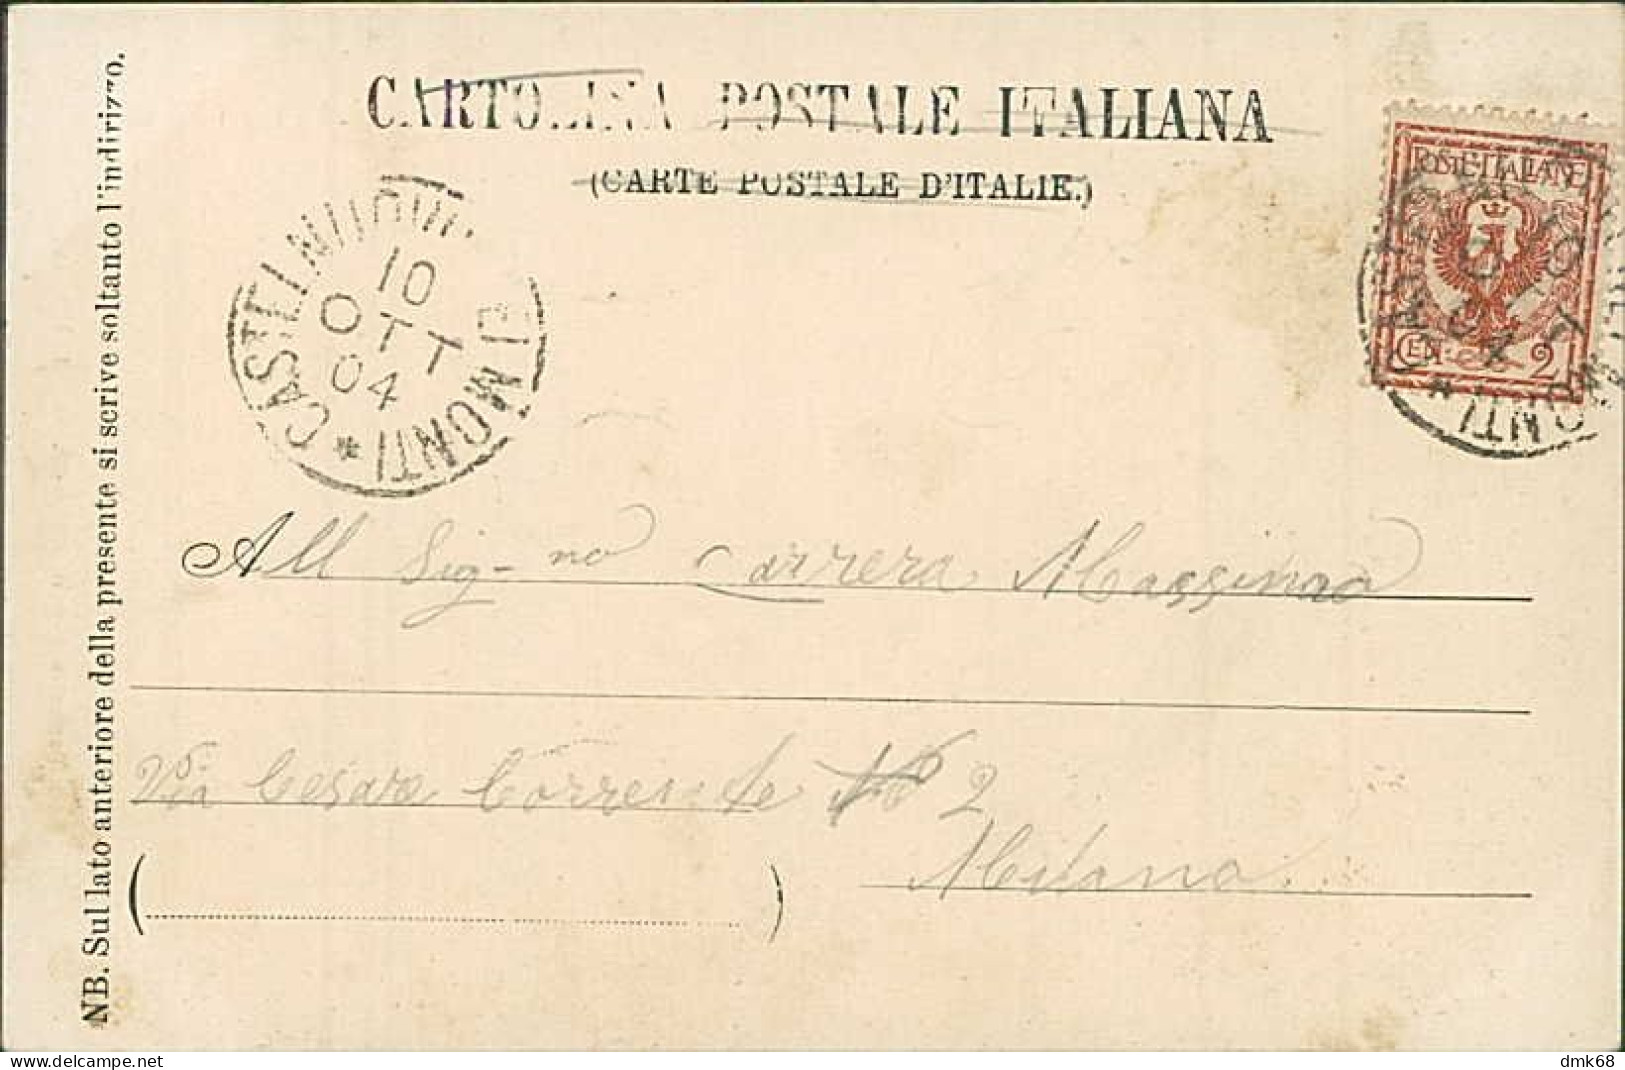 CARTOLINA POSTALE ITALIANA
(CARTE POSTALE D'ITALIE.)
POSTE ITALIANE
CEN. 2
CASTELNUOVO NE MONTI *
10
OTT
04
All Sig-no Carrera Massimo
Via Cesare Correnti No 2
Milano
NB. Sul lato anteriore della presente si scrive soltanto l'indirizzo.
www.delcampe.net
dmk68